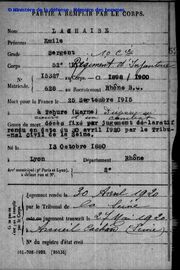 © Ministère de la défense - Mémoire des hommes
PARTIE À REMPLIR PAR LE CORPS.
Nom LACHAISE
Prénoms Emile
Grade sergent
Corps 51° Régiment d'Infanterie
N° 15387 au Corps. — Cl. 1898 / 1900
Matricule. 628 au Recrutement RHONE S.C.
Mort pour la France le 25 Septembre 1915
à
Genre de mort décès fixé par jugement déclaratif
rendu en date du 30 avril 1920 par le Tribu-
nal civil de la Seine.
Né le 13 Octobre 1880
à Lyon Département Rhône
Arr¹ municipal (pʳ Paris et Lyon), à défaut rue et N°. 2°
Jugement rendu le 30 Avril 1920
par le Tribunal de la Seine
jugement transcrit le 27 Mai 1920
à Arcueil Cachan (Seine)
N° du registre d'état civil